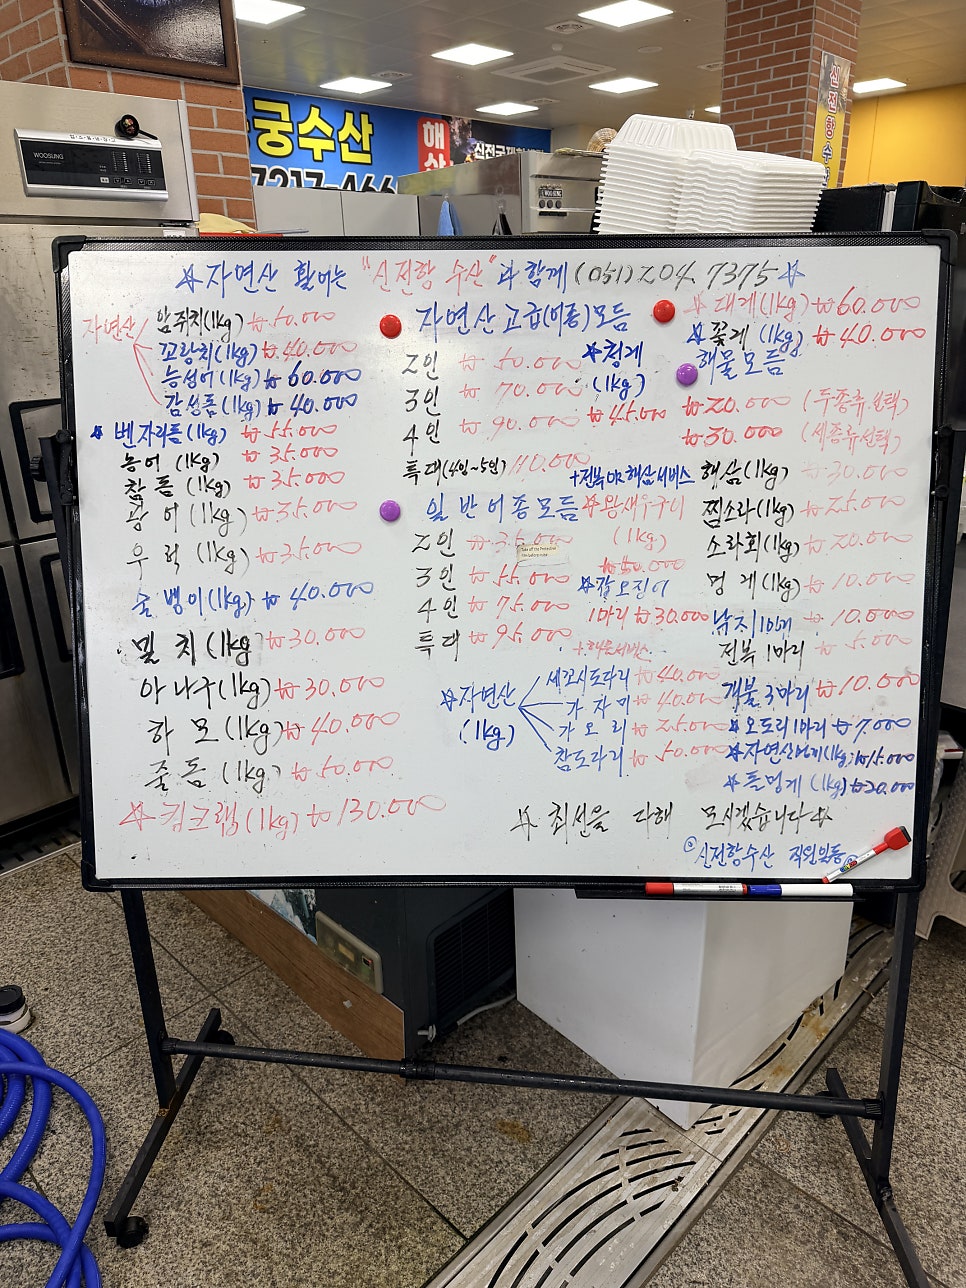 궁수산
7217-466
해산
신전국제
신전항수
WOOSUNG
☆자연산 활어는 "신전항 수산"과 함께 (051)204.7375☆
자연산
쥐치(1kg) ₩50.000
꼬랑치(1kg) ₩40.000
능성어(1kg) ₩60.000
감성돔(1kg) ₩40.000
☆벤자리돔(1kg) ₩55.000
농어 (1kg) ₩35.000
참돔(1kg) ₩35.000
광어(1kg) ₩35.000
우럭(1kg) ₩35.000
술뱅이(1kg) ₩40.000
밀치(1kg ₩30.000
아나구(1kg) ₩30.000
하모(1kg) ₩40.000
줄돔(1kg) ₩50.000
☆킹크랩(1kg) ₩130.000
자연산고급(어종)모듬
2인 ₩50.000
3인 ₩70.000
4인 ₩90.000
특대(4인~5인) 110.000
+전복OR해삼서비스
일반어종모듬
2인 ₩35.000
3인 ₩55.000
4인 ₩75.000
특대 ₩95.000
+해물서비스
☆청게
(1kg)
₩45.000
☆왕새우구이
(1kg)
₩50.000
☆갑오징어
1마리 ₩30.000
☆자연산
(1kg)
세꼬시도다리 ₩40.000
가자미 ₩40.000
가오리 ₩25.000
참도다리 ₩50.000
☆대게(1kg) ₩60.000
☆꽃게(1kg) ₩40.000
해물모듬
₩20.000 (두종류선택)
₩30.000 (세종류선택)
해삼(1kg) ₩30.000
찜소라(1kg) ₩25.000
소라회(1kg) ₩20.000
멍게(1kg) ₩10.000
낙지 ₩10.000
전복1마리 ₩5.000
개불3마리 ₩10.000
☆오도리1마리 ₩7.000
☆자연산멍게(1kg) ₩15.000
☆돌멍게(1kg) ₩20.000
☆최선을 다해 모시겠습니다☆
신전항수산 직원일동